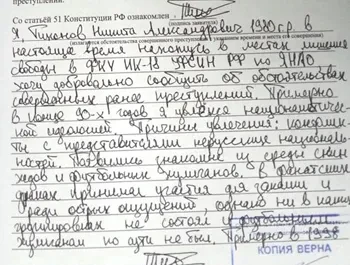 преступлении.
Со статьёй 51 Конституции РФ ознакомлен
(подпись заявителя)
Я, Тихонов Никита Александрович 1980 г.р. в
(излагаются обстоятельства совершенного преступления, с указанием времени и места его совершения)
настоящее время нахожусь в местах лишения
свободы в ФКУ ИК-18 УФСИН РФ по ЯНАО
хочу добровольно сообщить об обстоятельствах
совершенных ранее преступлений. Примерно
в конце 90-х годов я увлекся националистичес-
кой идеологией. Причины увлечения: конфлик-
ты с представителями нерусских национально-
стей. Появились знакомые из среды скин
хедов и футбольных хулиганов. В фанатских
драках принимал участия для компании и
ради острых ощущений, однако ни в каких
группировках не состоял и футбольным
хулиганом по сути не был. Примерно в 1998
КОПИЯ ВЕРНА